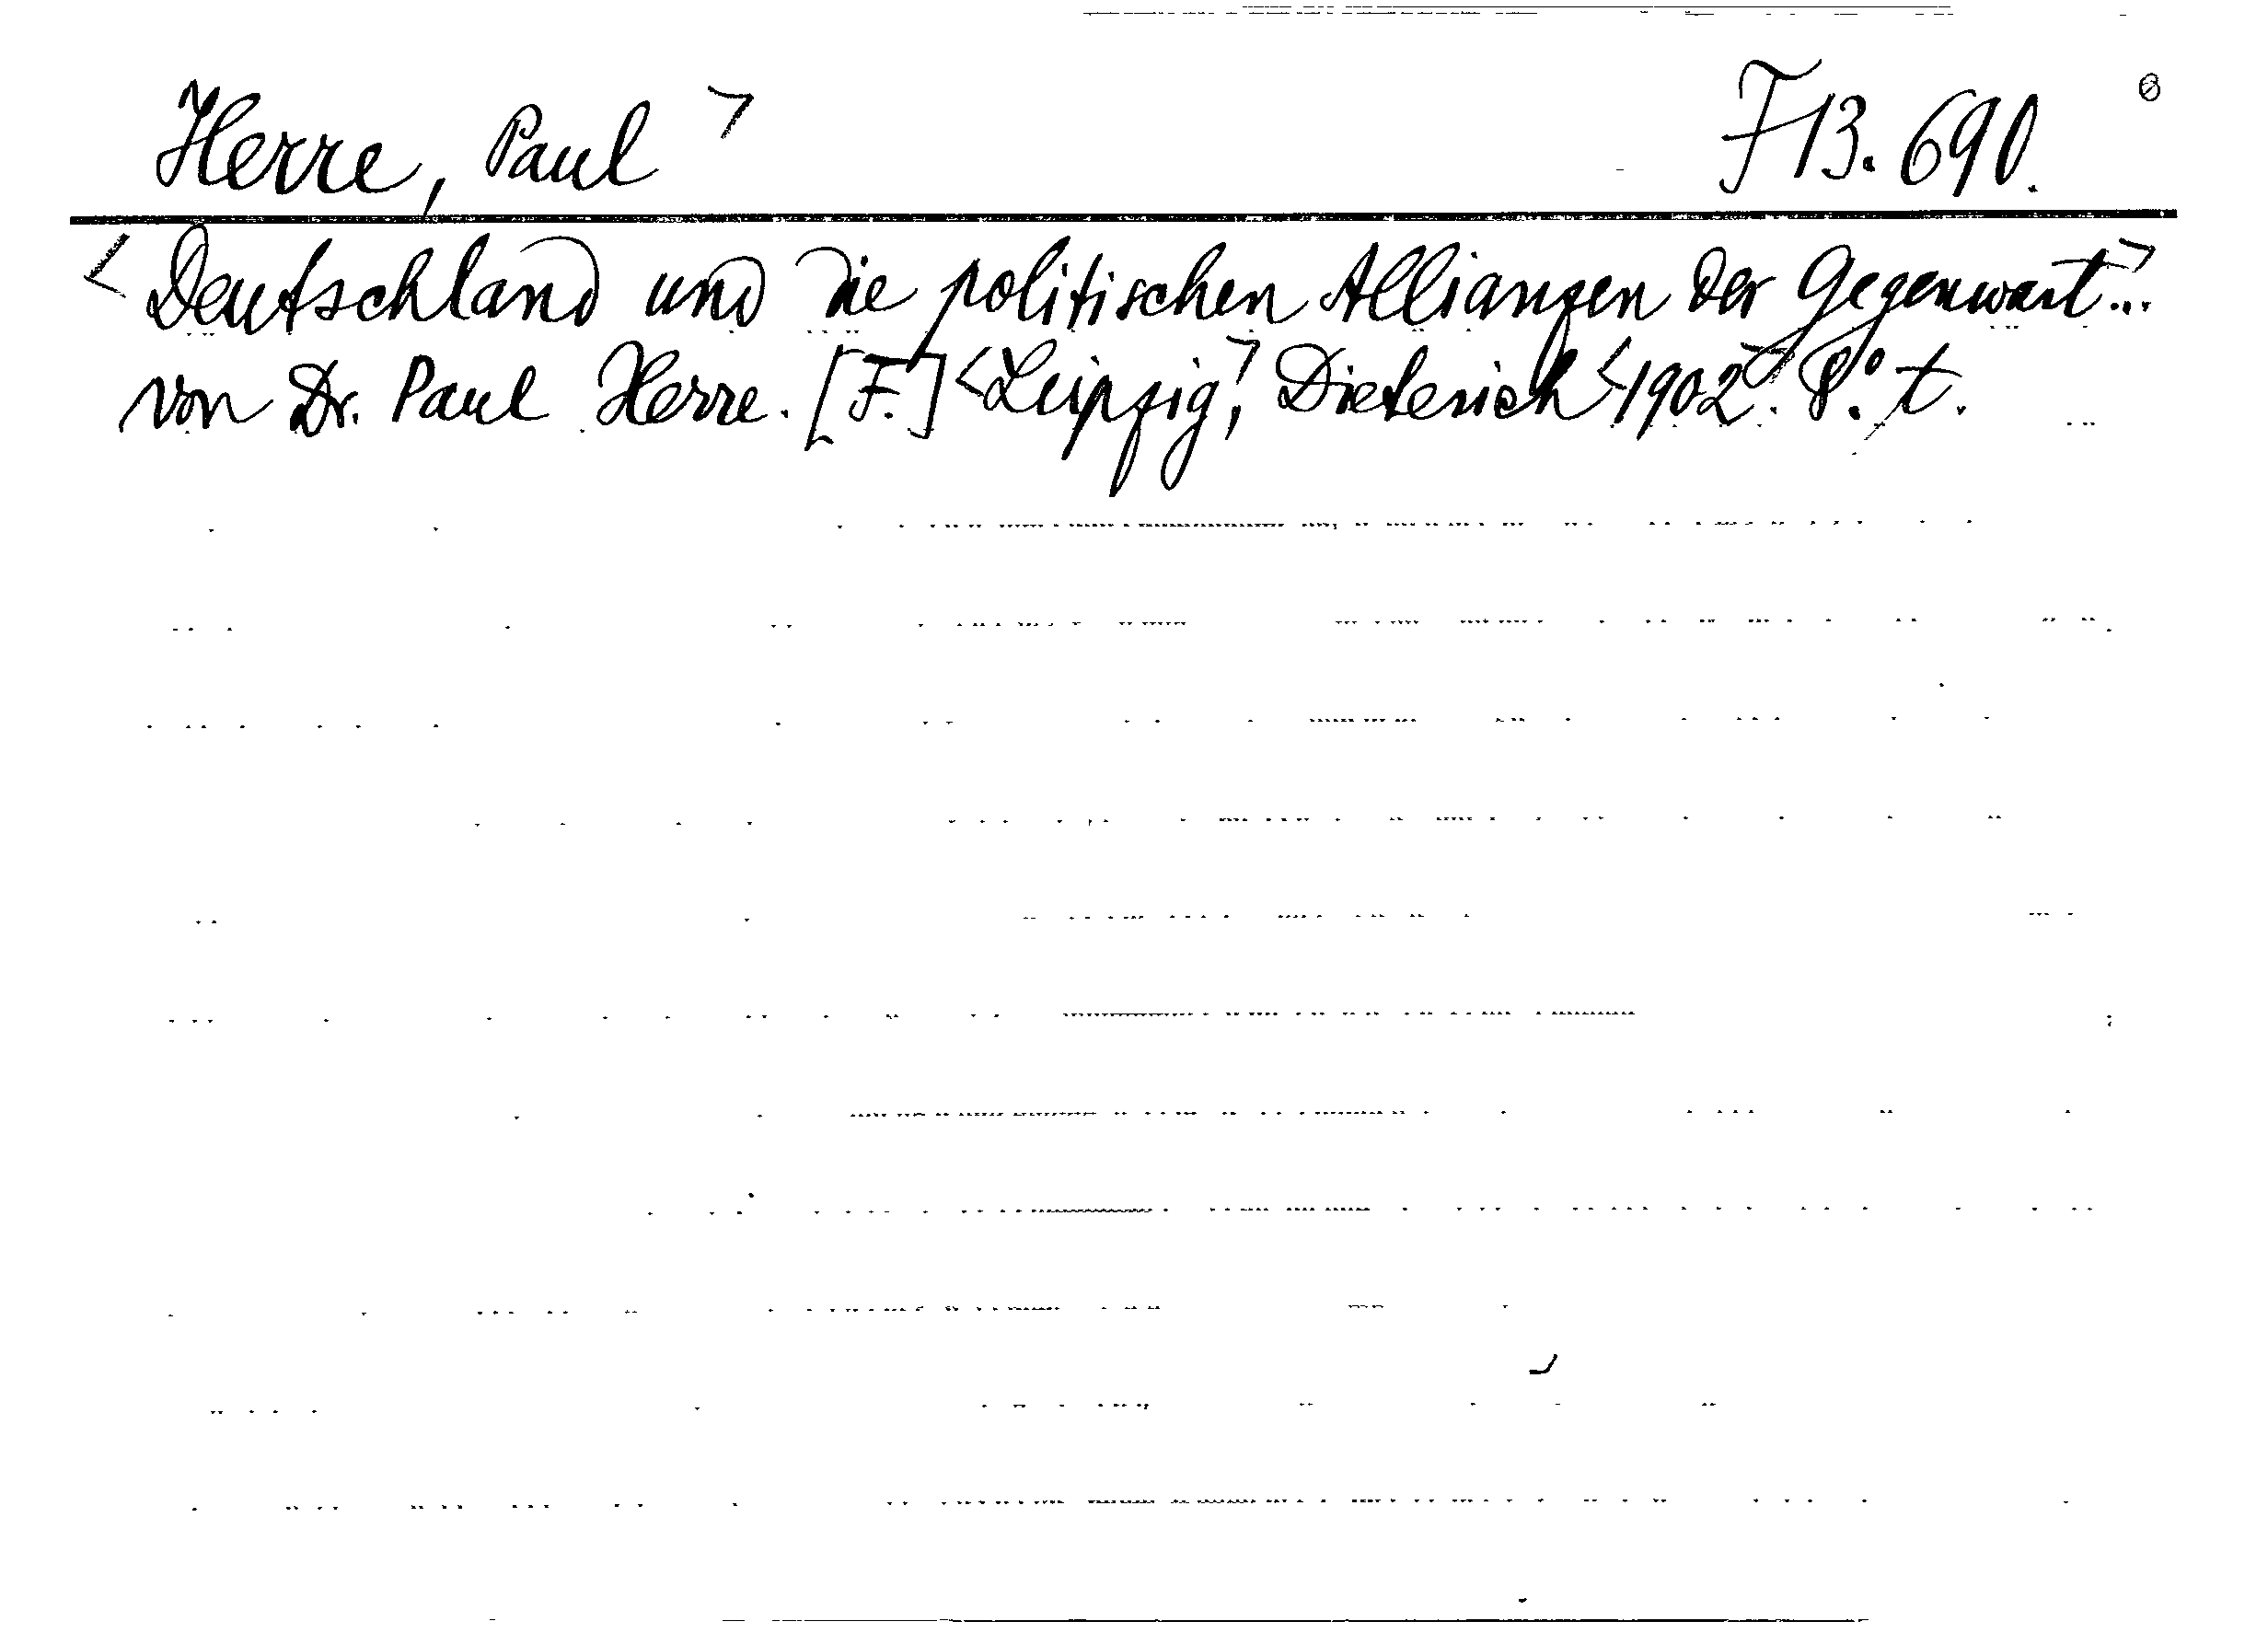 Herre, Paul> F 13.690.
<Deutschland und die politischen Allianzen der Gegenwart>...
von Dr. Paul Herre. [F.] <Leipzig>, Dieterich <1902>. 8.° t.